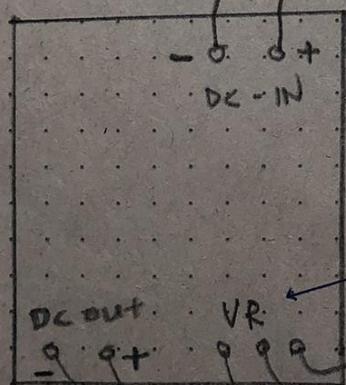 - +
DC-IN
DC OUT VR
- +